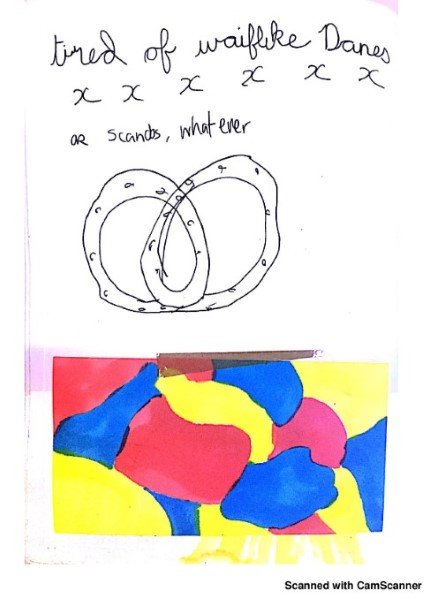 tired of waiflike Danes
x x x x x x
or scands, whatever
Scanned with CamScanner